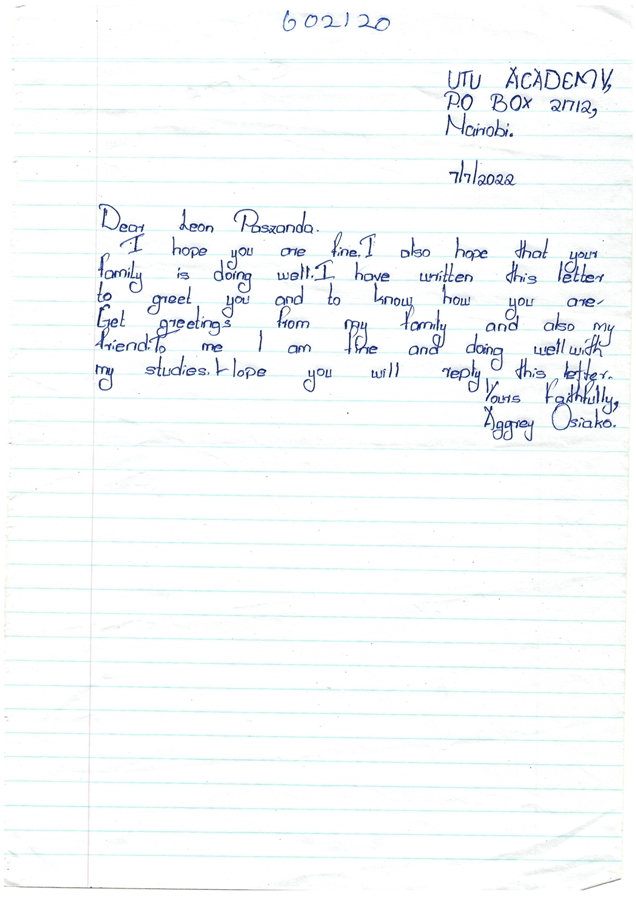 602120
UTU ACADEMY,
P.O BOX 21712,
Nairobi.
7/7/2022
Dear Leon Paszanda.
I hope you are fine.I also hope that your
family is doing well.I have written this letter
to greet you and to know how you are
Get greetings from my family and also my
friend.To me I am fine and doing well with
my studies.Hope you will reply this letter.
Yours Faithfully,
Aggrey Osiako.